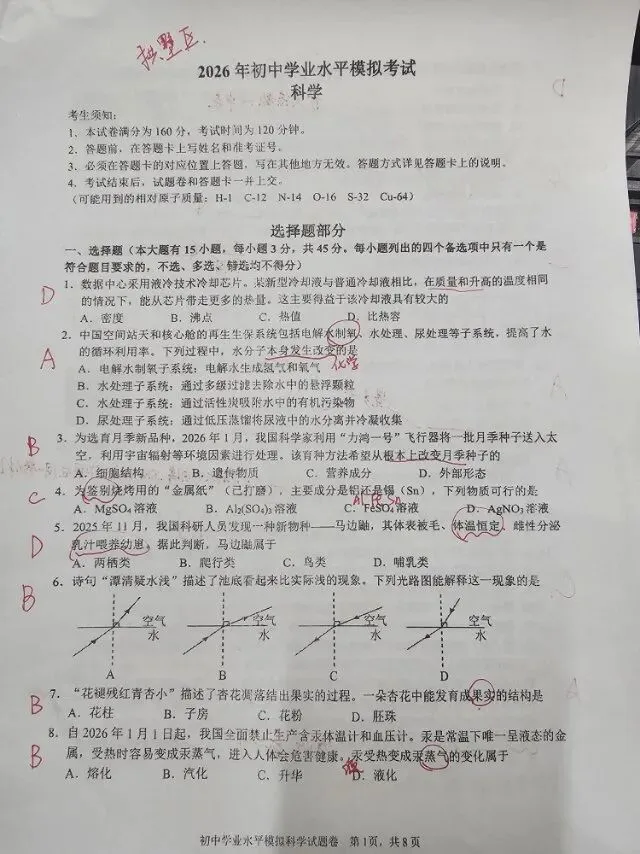 拱墅区
2026年初中学业水平模拟考试
科学
考生须知：
1．本试卷满分为160分，考试时间为120分钟。
2．答题前，在答题卡上写姓名和准考证号。
3．必须在答题卡的对应位置上答题，写在其他地方无效。答题方式详见答题卡上的说明。
4．考试结束后，试题卷和答题卡一并上交。
（可能用到的相对原子质量：H-1 C-12 N-14 O-16 S-32 Cu-64）
选择题部分
一、选择题（本大题有15小题，每小题3分，共45分。每小题列出的四个备选项中只有一个是
符合题目要求的，不选、多选、错选均不得分）
D 1．数据中心采用液冷技术冷却芯片。某新型冷却液与普通冷却液相比，在质量和升高的温度相同
的情况下，能从芯片带走更多的热量。这主要得益于该冷却液具有较大的
A．密度 B．沸点 C．热值 D．比热容
2．中国空间站天和核心舱的再生生保系统包括电解水制氧、水处理、尿处理等子系统，提高了水
A 的循环利用率。下列过程中，水分子本身发生改变的是
A．电解水制氧子系统：电解水生成氢气和氧气 化学
B．水处理子系统：通过多级过滤去除水中的悬浮颗粒
C．水处理子系统：通过活性炭吸附水中的有机污染物
D．尿处理子系统：通过低压蒸馏将尿液中的水分离并冷凝收集
B 3．为选育月季新品种，2026年1月，我国科学家利用“力鸿一号”飞行器将一批月季种子送入太
空，利用宇宙辐射等环境因素进行处理。该育种方法希望从根本上改变月季种子的
A．细胞结构 B．遗传物质 C．营养成分 D．外部形态
C 4．为鉴别烧烤用的“金属纸”（已打磨），主要成分是铝还是锡（Sn），下列物质可行的是
Al Fe Sn
A．MgSO₄溶液 B．Al₂(SO₄)₃溶液 C．FeSO₄溶液 D．AgNO₃溶液
5．2025年11月，我国科研人员发现一种新物种——马边鼩，其体表被毛、体温恒定、雌性分泌
D 乳汁喂养幼崽。据此判断，马边鼩属于
A．两栖类 B．爬行类 C．鸟类 D．哺乳类
B 6．诗句“潭清疑水浅”描述了池底看起来比实际浅的现象。下列光路图能解释这一现象的是
空气 空气 空气 空气
水 水 水 水
A B C D
B 7．“花褪残红青杏小”描述了杏花凋落结出果实的过程。一朵杏花中能发育成果实的结构是
A．花柱 B．子房 C．花粉 D．胚珠
8．自2026年1月1日起，我国全面禁止生产含汞体温计和血压计。汞是常温下唯一呈液态的金
B 属，受热时容易变成汞蒸气，进入人体会危害健康。汞受热变成汞蒸气的变化属于
A．熔化 B．汽化 C．升华 D．液化
初中学业水平模拟科学试题卷 第1页，共8页